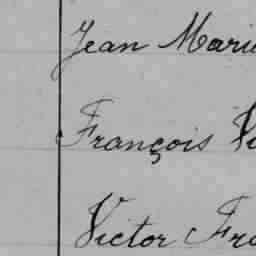 Jean Marie
François
Victor